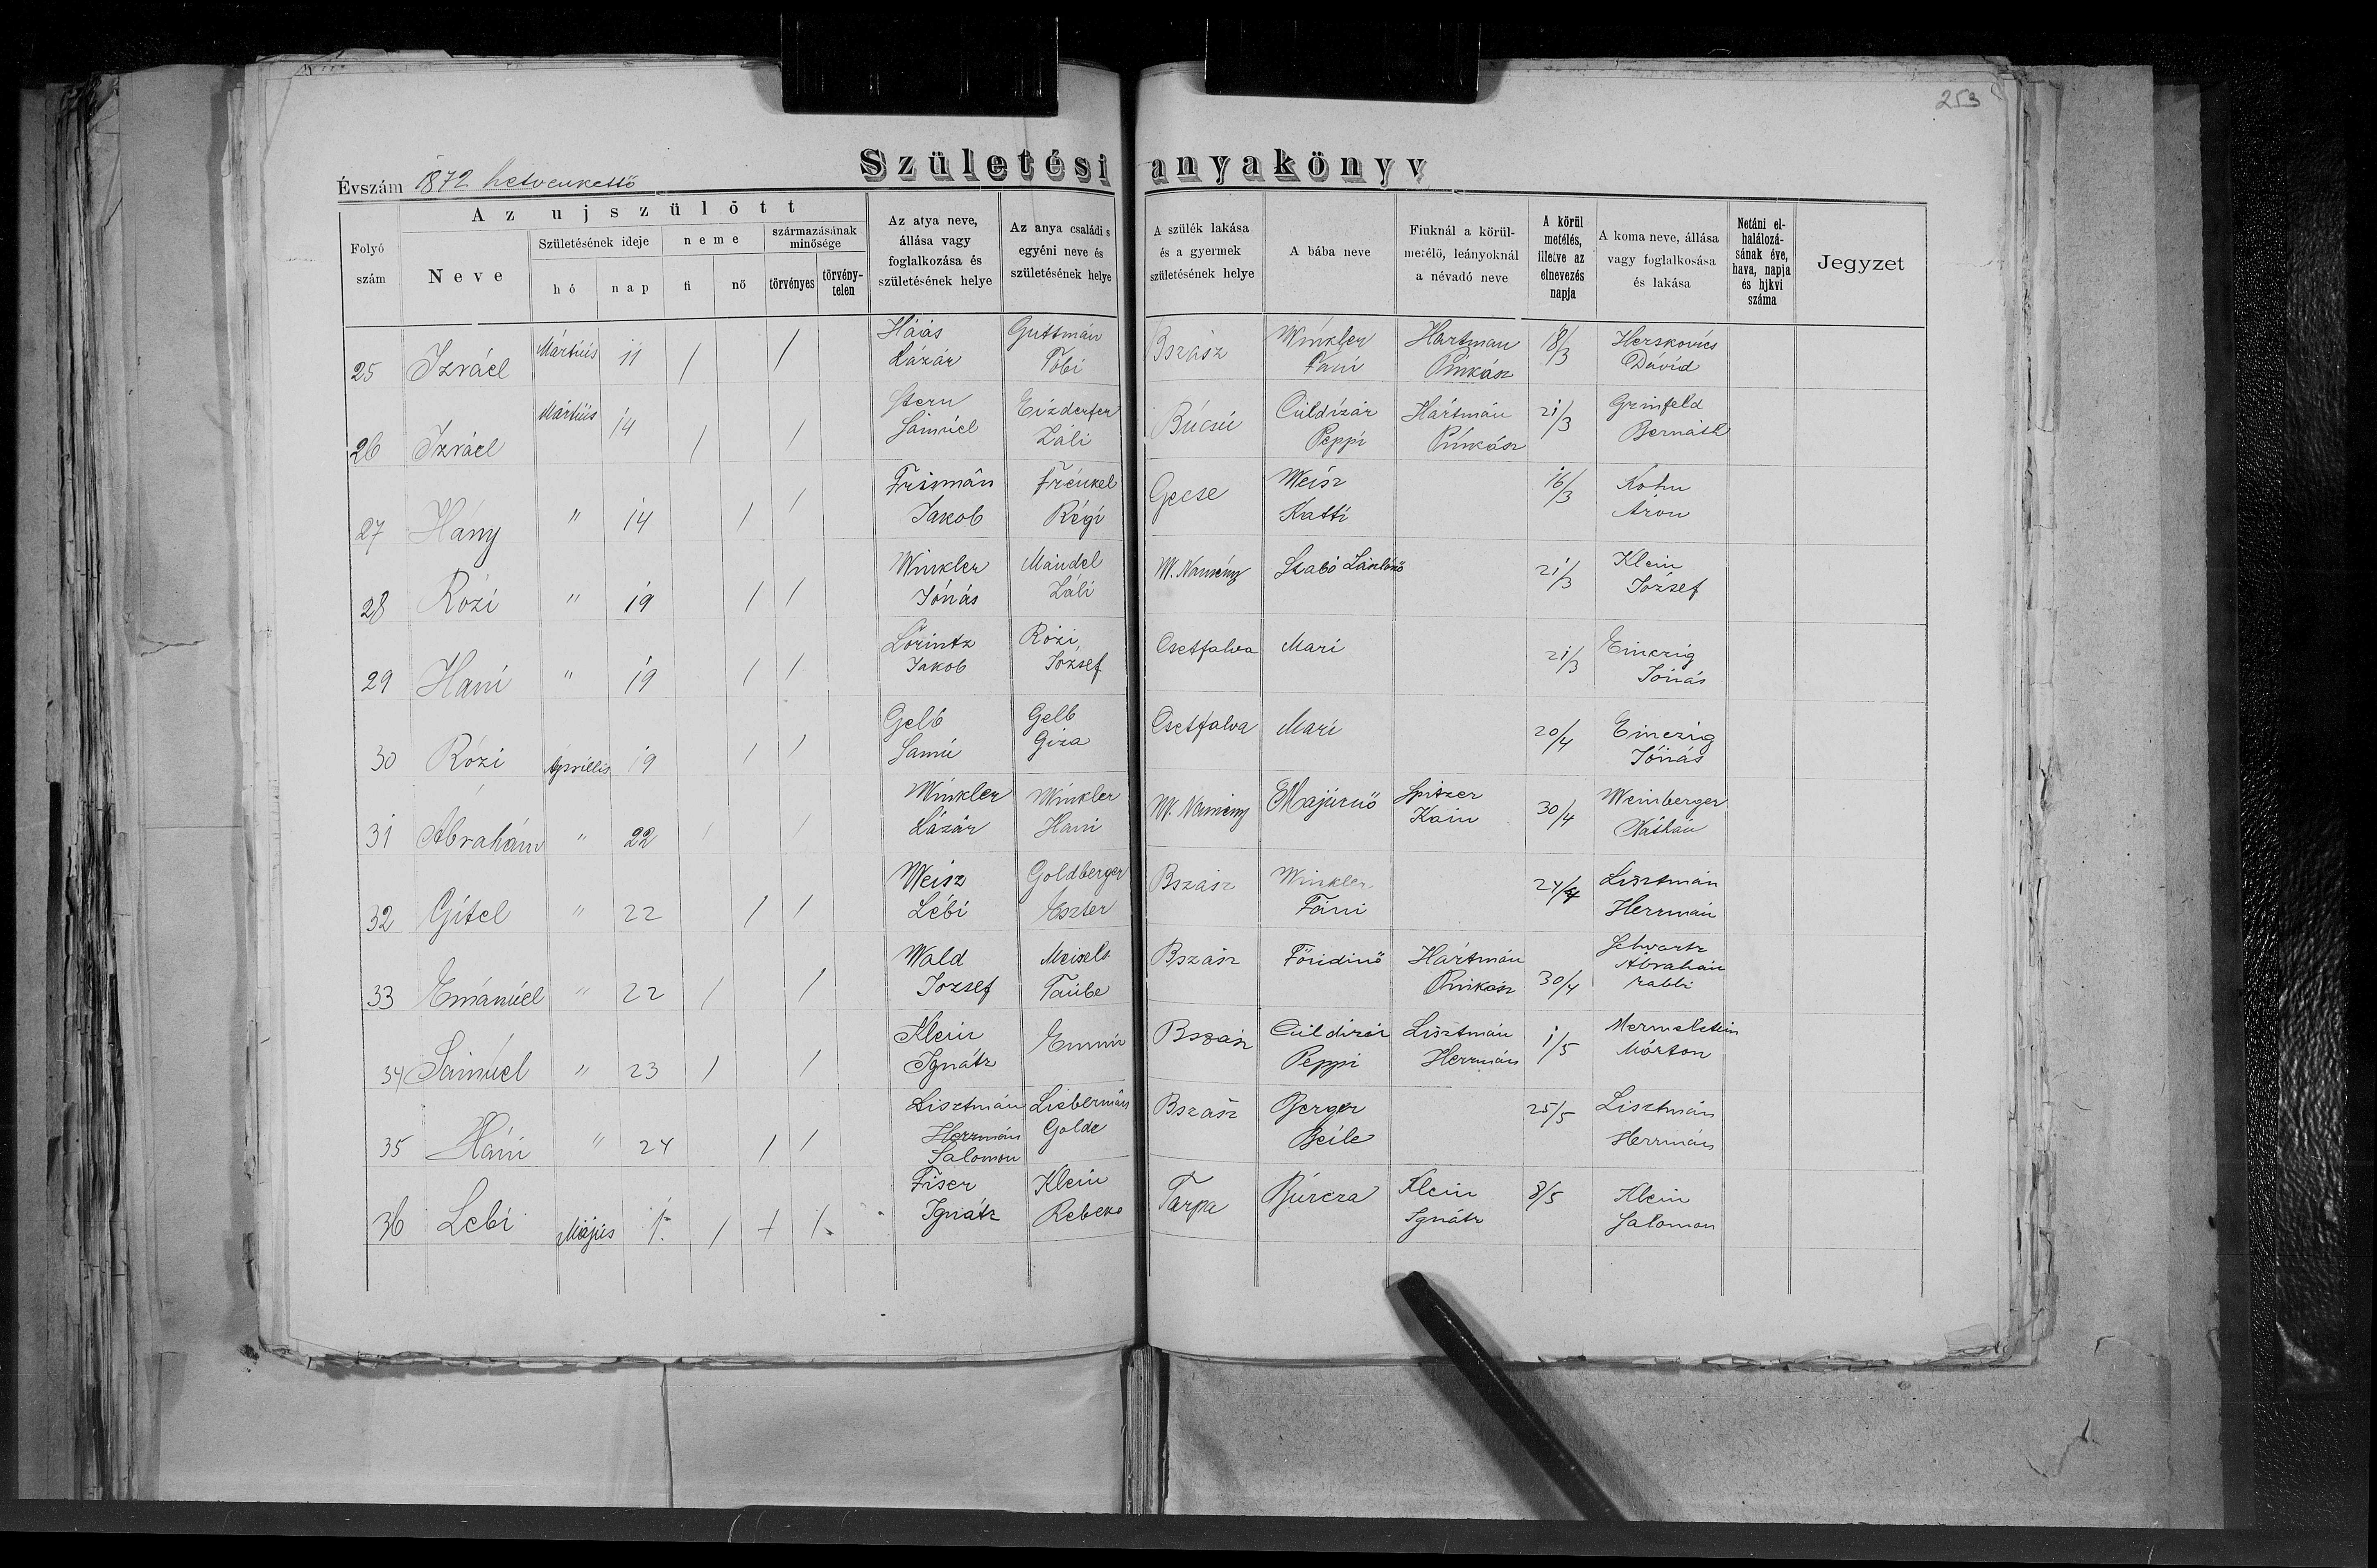 253
Születési anyakönyv
Évszám 1872 hetvenkettö
Folyó szám
Az ujszülött
Neve
Születésének ideje
hó
nap
neme
fi
nö
származásának minősége
törvényes
törvény-telen
Az atya neve, állása vagy foglalkozása és születésének helye
Az anya családi s egyéni neve és születésének helye
A szülék lakása és a gyermek születésének helye
A bába neve
Fiuknál a körül-metélő, leányoknál a névadó neve
A körül metélés, illetve az elnevezés napja
A koma neve, állása vagy foglalkosása és lakása
Netáni el-halálozá-sának éve, hava, napja és hjkvi száma
Jegyzet
25 Izráel Mártius 11 / / Háás Lázár Guttmán Tóbi Bszász Winkler Fáni Hartman Pinkász 18/3 Herskovics Dávid
26 Izráel Mártius 14 / / Stern Sámúel Eizderfer Záli Búcsú Cúldizár Peppi Hártmán Pinkász 21/3 Grinfeld Bernáth
27 Hány " 14 / / Frismán Jakob Frénkel Régi Gecse Weisz Katti 16/3 Kohn Áron
28 Rózi " 19 / / Winkler Jónás Mandel Záli M. Namény Szabó Lászlóné 21/3 Klein József
29 Hani " 19 / / Lörintz Jakob Rózi József Csetfalva Mari 21/3 Einczig Jónás
30 Rózi Áprillis 19 / / Gelb Samú Gelb Giza Csetfalva Mari 20/4 Einczig Jónás
31 Abrahám " 22 / / Winkler Lázár Winkler Hani M. Namény Majúrnö Spitzer Kain 30/4 Weinberger Náthán
32 Gitel " 22 / / Weisz Lébi Goldberger Eszter Bszász Winkler Fáni 24/4 Lisztmán Herrmán
33 Emánúel " 22 / / Wald Jozsef Meisels Taúbe Bszász Földinö Hártmán Pinkász 30/4 Schvartz Ábrahám rabbi
34 Sámúel " 23 / / Klein Ignátz Bszász Cúldizár Peppi Lisztmán Herrmán 1/5 Mermelstein Márton
35 Háni " 24 / / Lisztmán Herrmán Salomon Liebermán Golde Bszász Berger Beile 25/5 Lisztmán Herrmán
36 Lebi Május 1. / + /. Fiser Ignátz Klein Rebeka Tarpa Búrcza Klein Ignátz 8/5 Klein Salomon